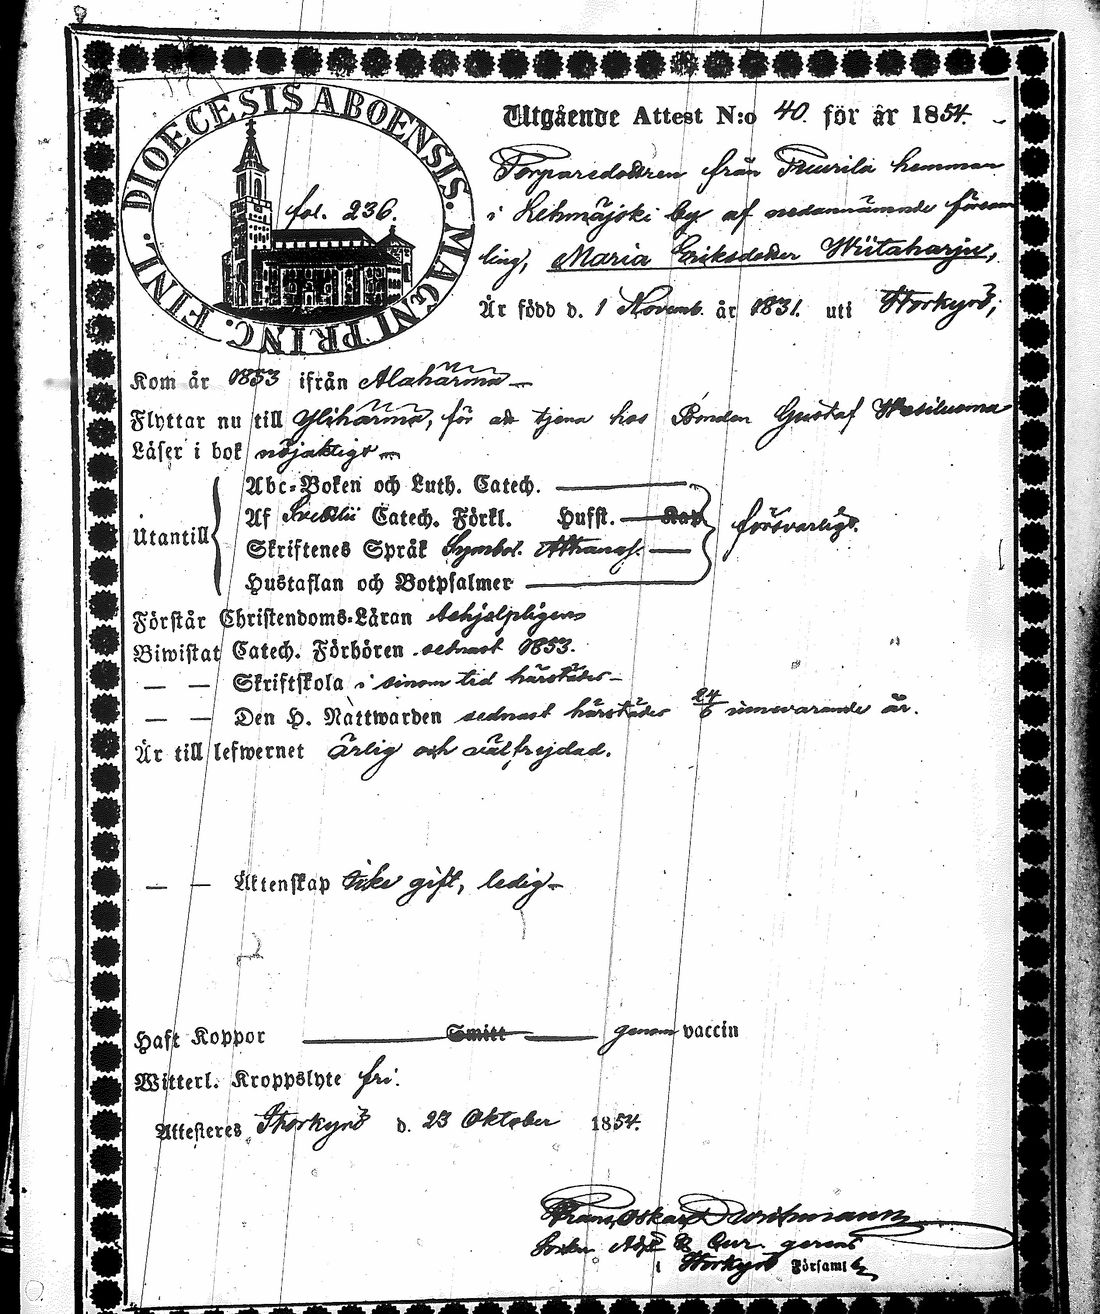 DIOECESIS ABOENSIS. MAGNI PRINC. FINL.
fol. 236.
Utgående Attest N:o 40 för år 1854.
Torparedottren från Tuurila hemman
i Lehmäjoki by af nedannämnde försam
ling, Maria Eriksdotter Wiitaharju,
Är född d. 1 Novemb. år 1831. uti Storkyrö;
Kom år 1853 ifrån Alahärmä
Flyttar nu till Ylihärmä, för att tjena hos Bonden Gustaf
Läser i bok nöjaktigt
Utantill
Abc-Boken och Luth. Catech.
Af Svebilii Catech. Förkl. Hufst. Kap
Skriftenes Språk Symbol. Athanas.
Hustaflan och Botpsalmer
försvarligt.
Förstår Christendoms-Läran behjelpligen
Biwistat Catech. Förhören sednast 1853.
— — Skriftskola i sinom tid härstädes
— — Den H. Nattwarden sednast härstädes 24/6 innevarande år.
Är till lefwernet ärlig och välfrejdad.
— — Äktenskap icke gift, ledig
Haft Koppor Smitt genom vaccin
Witterl. Kroppslyte fri.
Attesteres Storkyrö d. 23 Oktober 1854.
Frans Oskar Durchman
Adj. gerens
i Storkyrö Församl